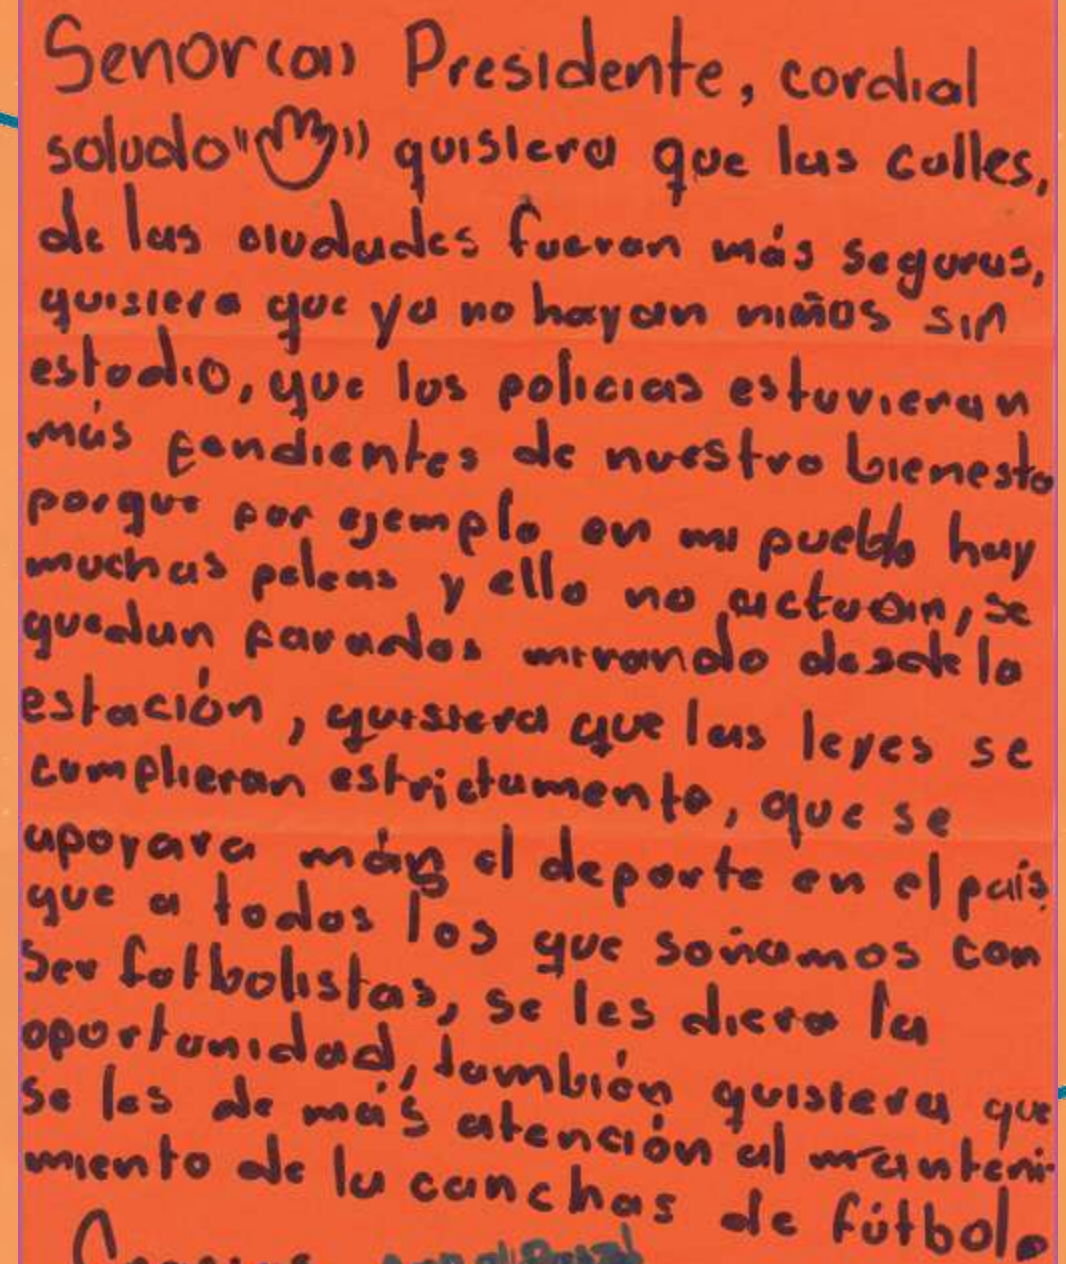 Senor(a)) Presidente, cordial
saludo "())) quisiera que las calles,
de las ciudades fueran más seguras,
quisiera que ya no hayan niños sin
estudio, que los policias estuvieran
más pendientes de nuestro bienesta
porque por ejemplo en mi pueblo hay
muchas peleas y ello no actuan, se
quedan parados mirando desde la
estación, quisiera que las leyes se
complieran estrictamente, que se
apoyara más el deporte en el país
que a todos los que soñamos con
ser futbolistas, se les diera la
oportunidad, también quisiera que
se les de más atención al manteni-
miento de la canchas de fútbol.
Gracias